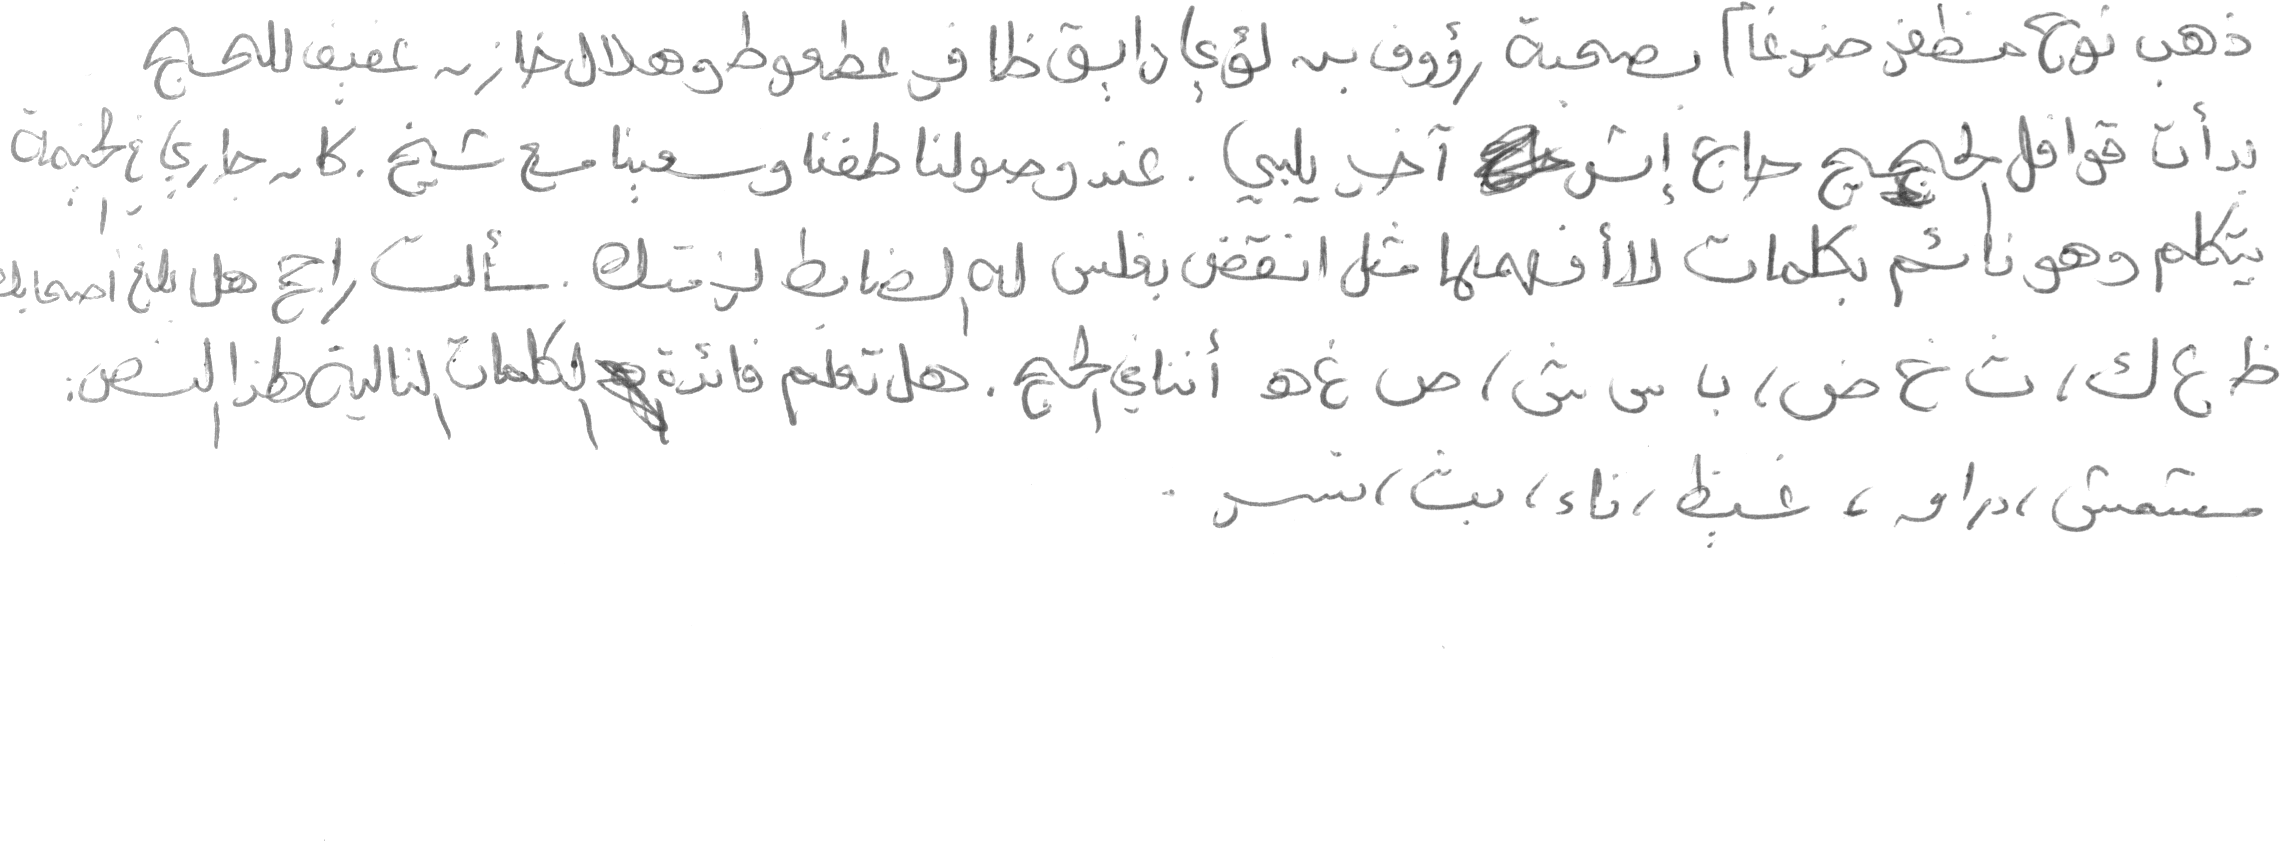 ذهب نوح مظفر ضرغام بصحبة رؤوف بن لؤي رايق ظافر عطعوط وهلال خازن عفيف للحج
بدأت قوافل الحجيج حاج إثر آخر يلبي . عند وصولنا طفنا وسعينا مع شيخ . كان جاري في الخيمة
يتكلم وهو نائم بكلمات لا أفهمها مثل انقض بغلس له الضابط لزمتك . سألت راجح هل بلغ أصحابك
ظ ع ك ، ث خ ض ، ب س ش ، ص غ ه أثناء الحج . هل تعلم فائدة الكلمات التالية لهذا النص :
مشمش ، دراق ، غيظ ، ناء ، بث ، نسر .